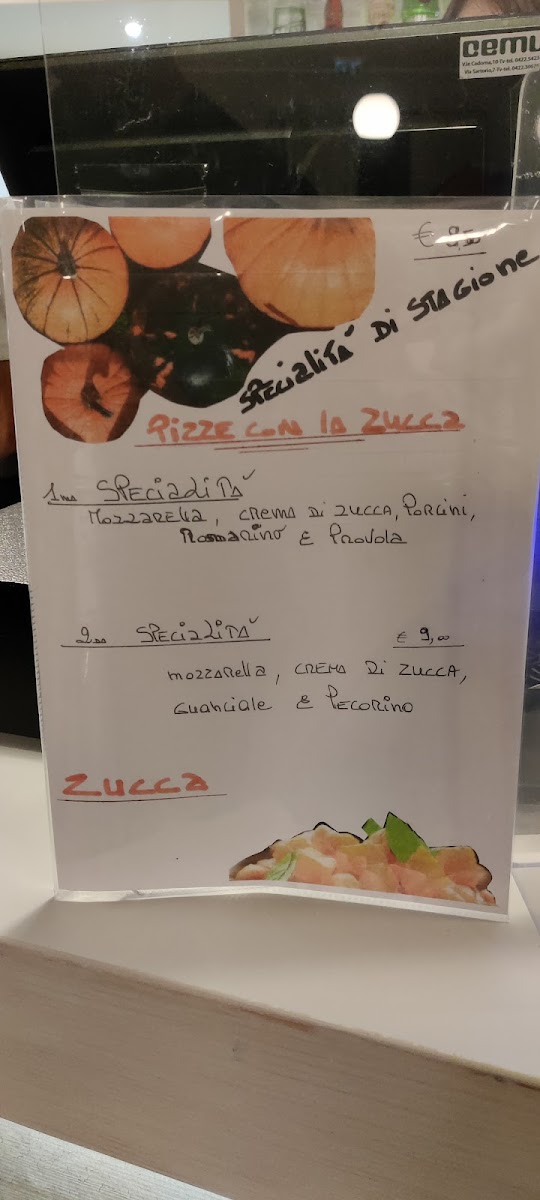 cemu
Via Sarcato,7-Tv-tel.
€ 8,50
SPECIALITÁ DI STAGIONE
PIZZE CON LA ZUCCA
1ma SPECIALITÁ
MOZZARELLA, CREMA DI ZUCCA, PORCINI,
ROSMARINO E PROVOLA
2da SPECIALITÁ € 9,00
MOZZARELLA, CREMA DI ZUCCA,
GUANCIALE E PECORINO
ZUCCA